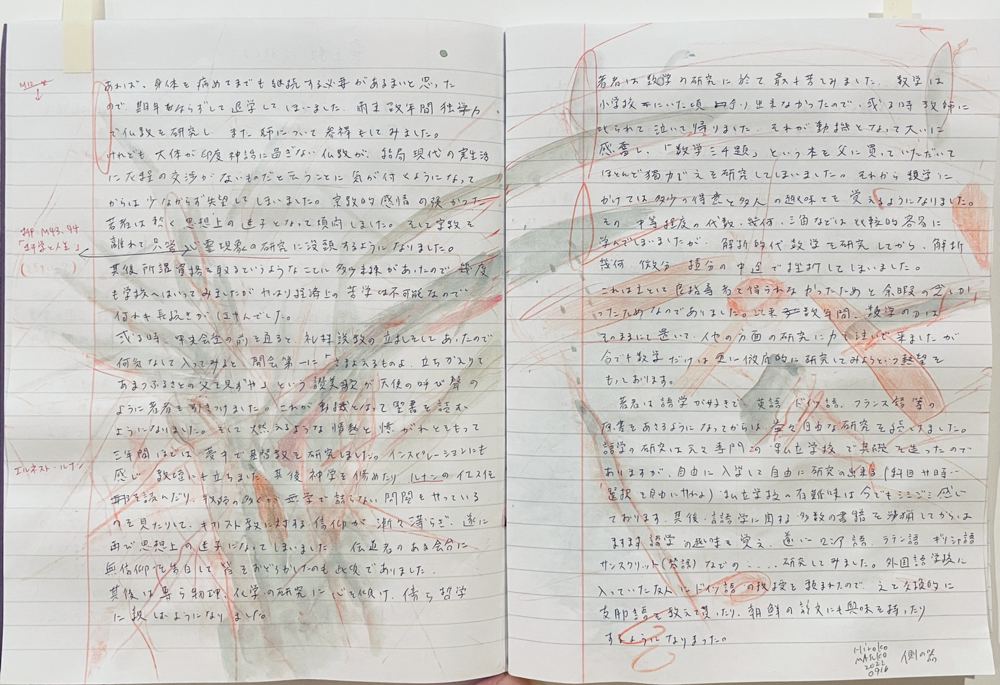 あれば、身体を病めてまでも継続する必要があるまいと思った
ので、期年ならずして退学してしまいました。爾来数年間独学力
で仏教を研究し、また師について参禅もしてみました。
けれども大体が印度神話に過ぎない仏教が、結局現代の実生活
に大程の交渉がないものだと云うことに気が付くようになって
からは少なからず失望してしまいました。宗教的感情の強かった
著者は暫く思想上の迷子となって煩悶しました。そして宗教を
離れて 霊現象の研究に没頭するようになりました。
其後所謂資格を取るというようなことに多少未練があったので幾度
も学校へはいってみましたがやはり経済上の苦学は不可能なので
何れも長続きがしませんでした。
或る時、 会堂の前を通ると、札拝説教の立ましをしてあったので
何気なしで入ってみると開会第一に「さまよえるものよ、立ちかえりて
あまつふるさとの父を見ずや」という讃美歌が天使の叫び聲の
ように著者を引きつけました。これが動機となって聖書を読む
ようになりました。そして燃えるような情熱と憧がれとをもって
三年間ほどは夢中で基督教を研究しました。インスピレーションにも
感じ 数壇にも立ちました。其後神学を修めたり ルナンのイエス伝
を読んだり、牧師の多くが無学で詰らない問閥をやっている
のを見たりして、キリスト教に対する信仰が漸々薄らぎ、遂に
再び思想上の迷子になってしまいました。伝道先のある会合に
無信仰を告白して皆をおどろかしたのも此頃でありました。
其後は専ら物理、化学の研究に心を傾け、傍ら哲学
に親しむようになりました。
M43.44
「科学と人生」
エルネスト・ルナン
著者は数学の研究に於て最も苦しみました。数学は
小学校にいた頃 余り出来なかったので、或る時教師に
叱られて泣いて帰りました。それが動機となって大いに
感奮し、「数学三千題」という本を父に買っていただいて
ほとんど独力で之を研究してしまいました。それから数学に
かけては多少の得意と多人の趣味とを覚えるようになりました。
その後中等程度の代数、幾何、三角などは比較的容易に
学んでしまいましたが、解析的代数学を研究してから、解析
幾何、微分、積分の中途で挫折してしまいました。
これは主として良指導者を得られなかったためと余暇の乏しか
ったためなのでありました。以来数年間、数学の方は
そのままに置いて、他の方面の研究に力を注いで来ましたが
今でも数学だけは更に徹底的に研究してみようという熱望を
もしております。
著者は語学が好きで、英語、ドイツ語、フランス語等の
原書をあさるようになってからは 自由な研究を続けました。
語学の研究は元々専門の私立学校で基礎を造ったので
ありますが、自由に入学して自由に研究の出来る(科目や時間の
選択も自由にやれる)私立学校の有難味は今でもしみじみ感じ
ております。其後、言語学に関する多数の書籍を渉猟してからは
ますます語学の趣味を覚え、遂にロシア語、ラテン語、ギリシャ語
サンスクリット(梵語)などの....研究してみました。外国語学校に
入っていた友人にドイツ語の教授を頼まれたので、之と交換的に
支那語を教えて貰ったり、朝鮮の諺文にも興味を持ったり
するようになりました。
Hiroko
MAIKO
2022
0916